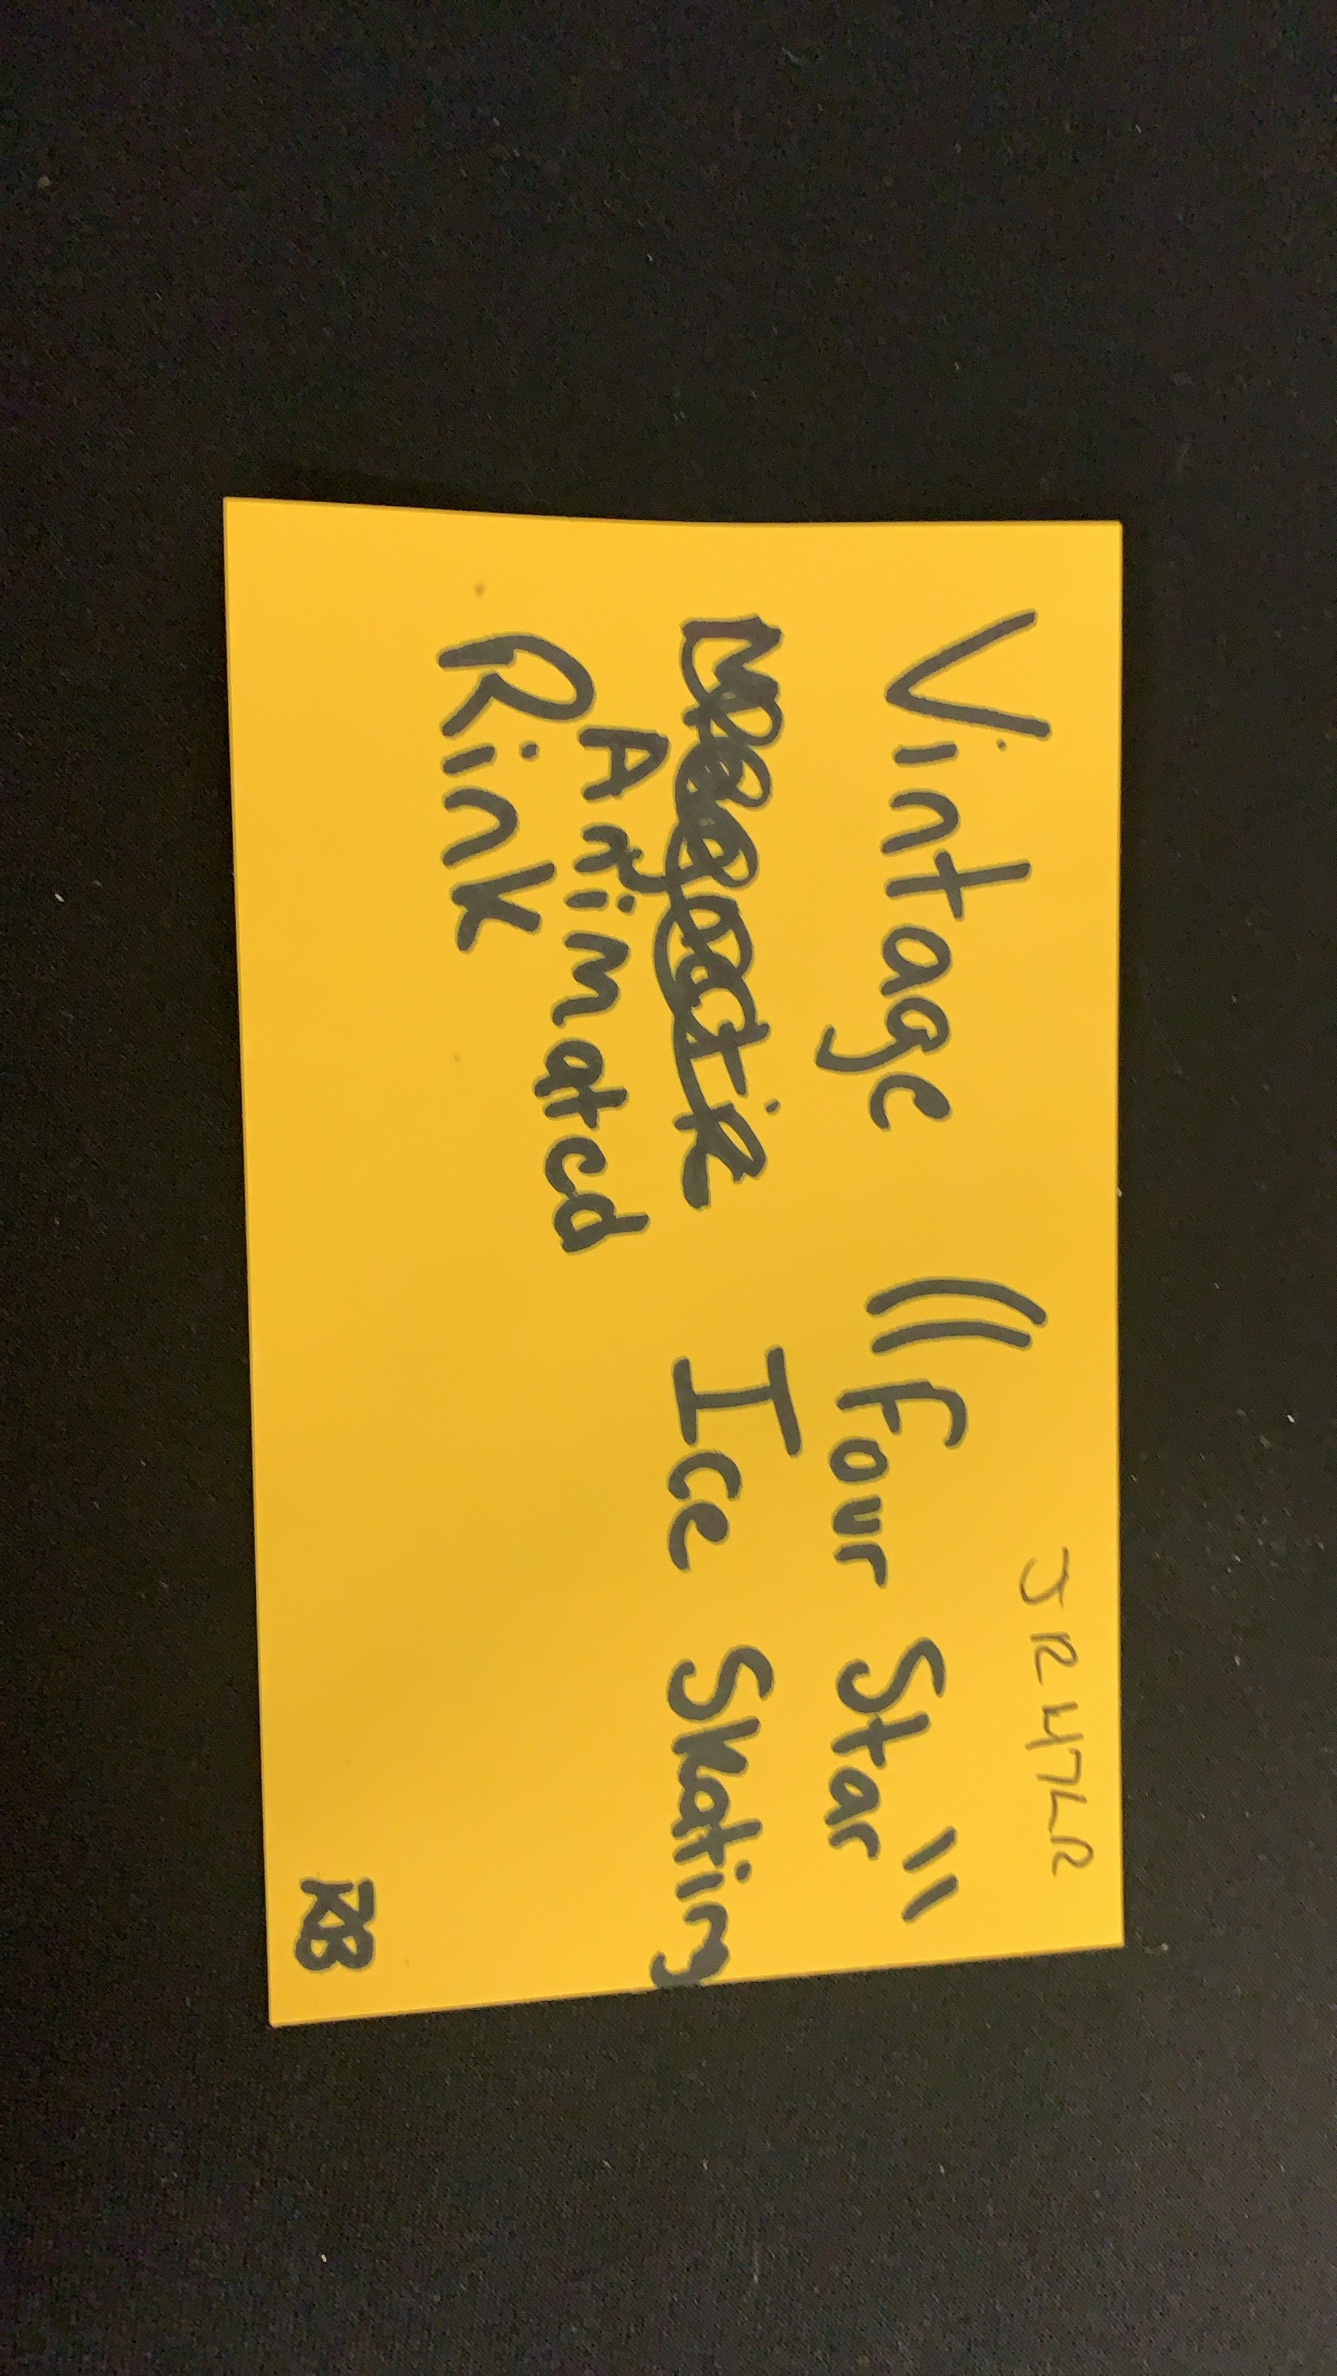 JRH7LR
Vintage "Four Star"
Ice Skating
Animated
Rink
RB